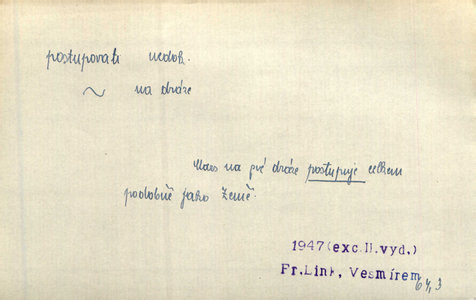 postupovati nedok.
~ na dráze
Mars na své dráze postupuje celkem
podobně jako Země.
1947(exc.II.vyd.)
Fr.Link, Vesmírem